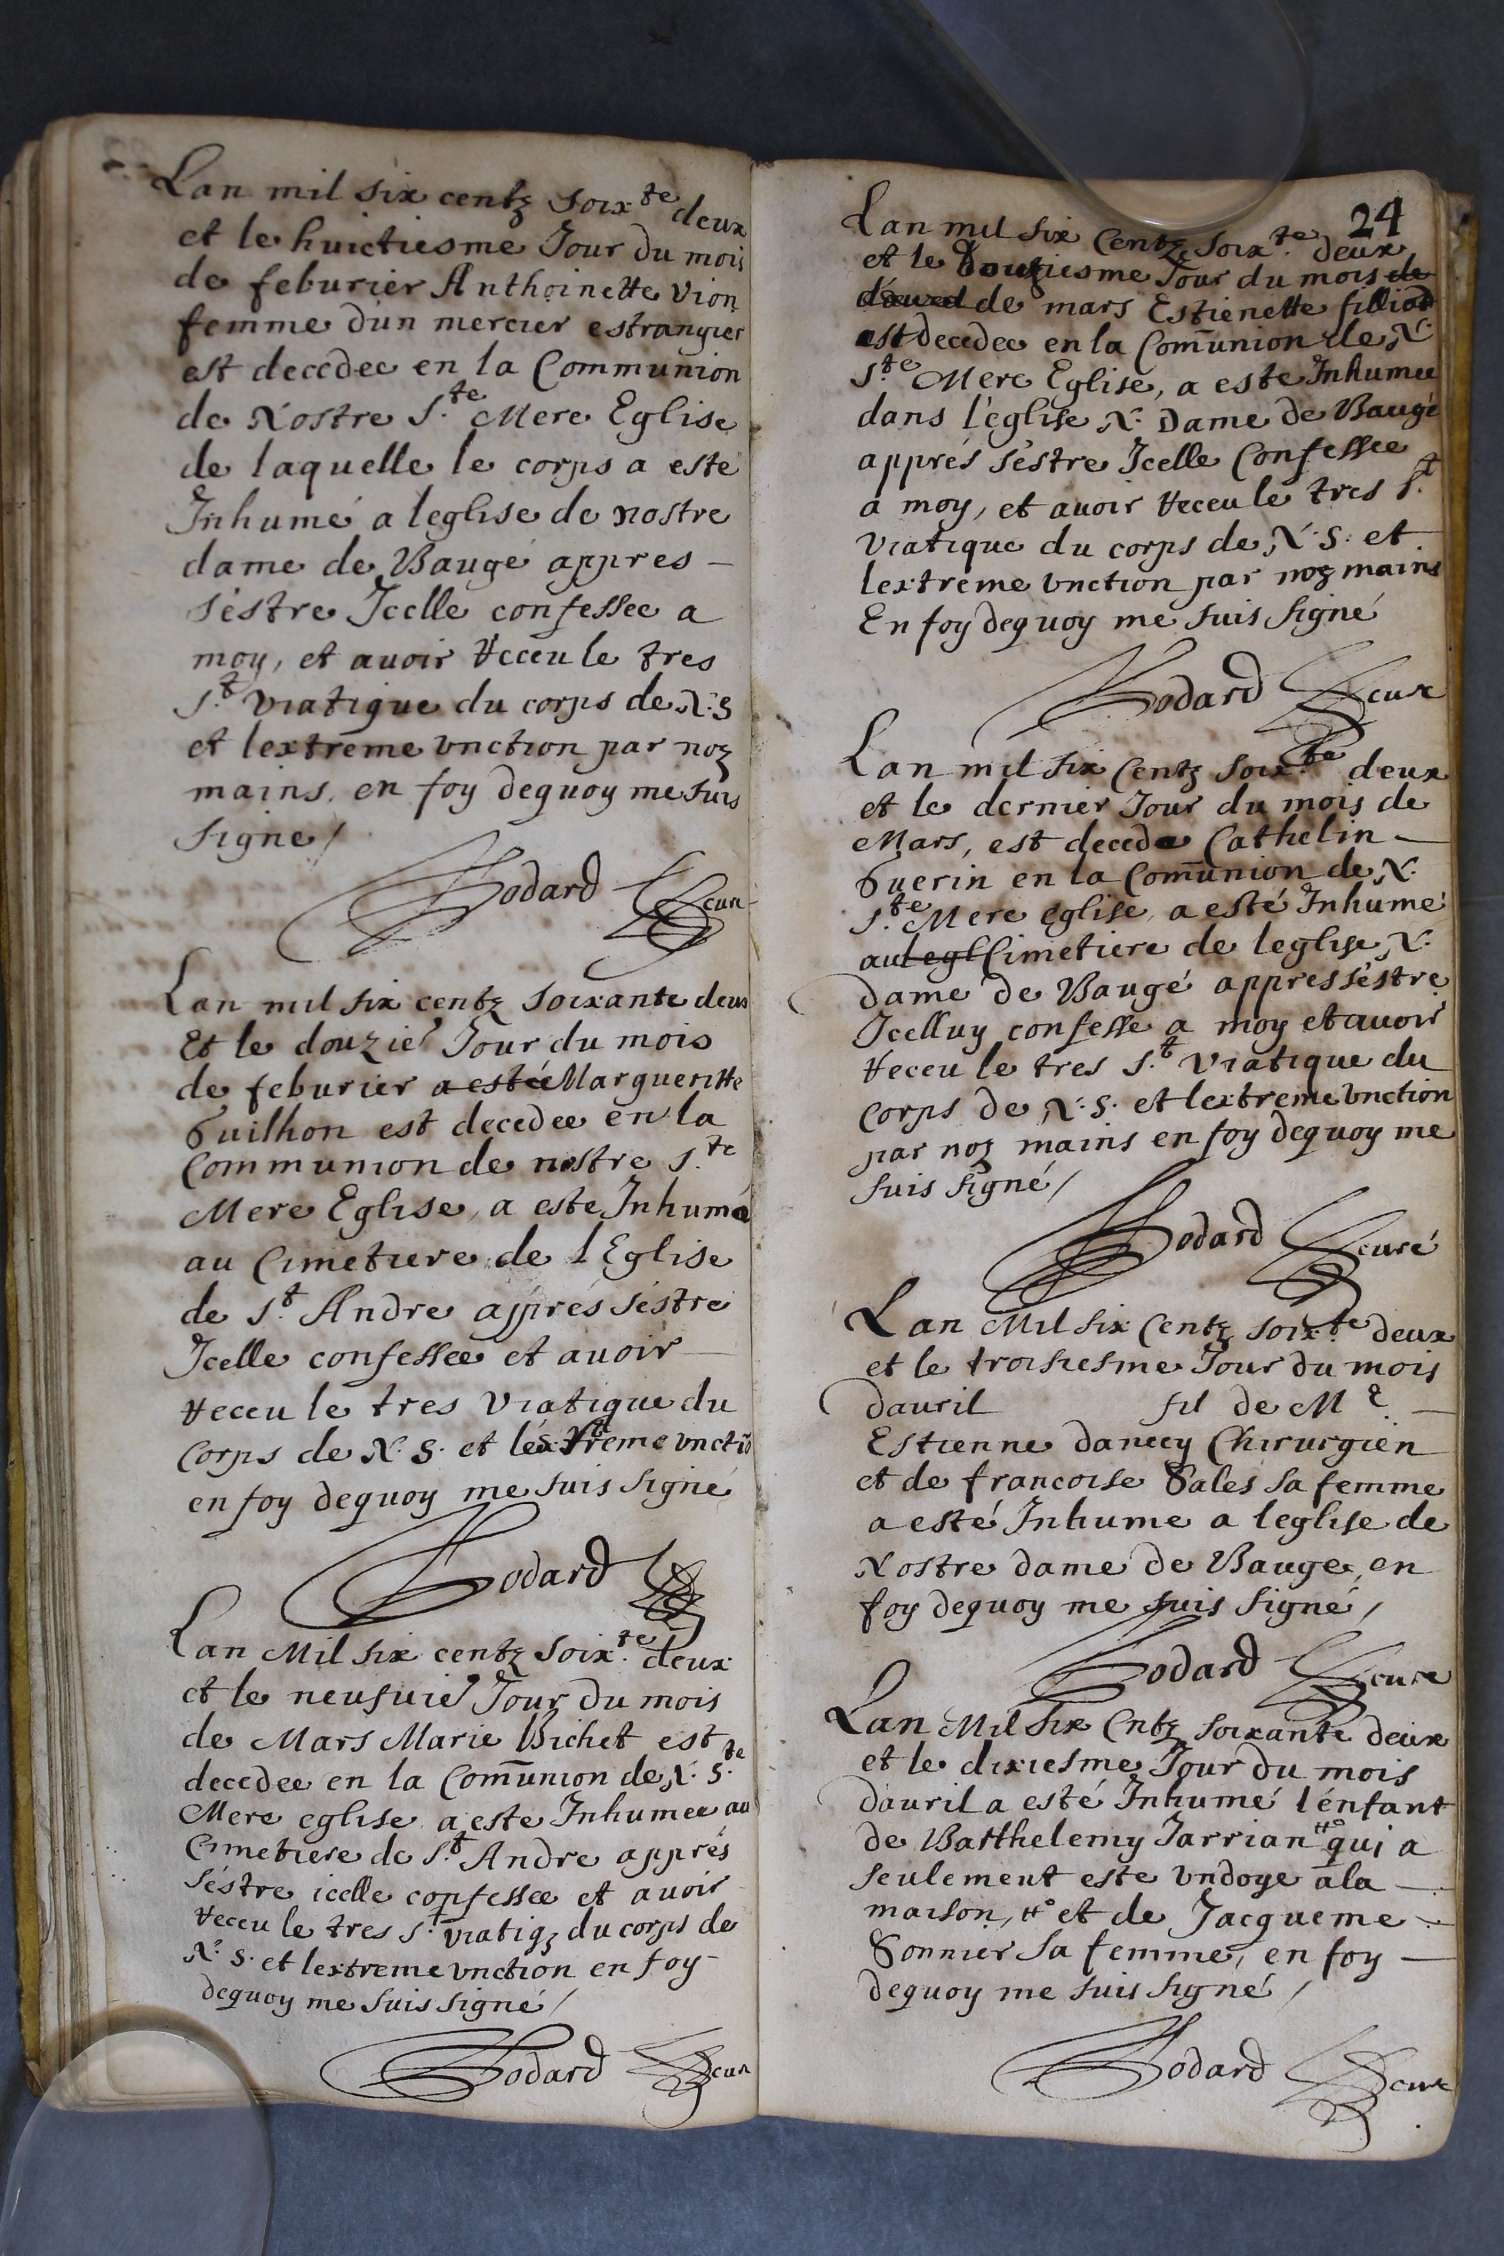 Lan mil six centz soixte deux
et le huictiesme Jour du mois
de feburier Anthoinette Vion
femme dun mercier estrangier
est decedee en la Communion
de Nostre S.te Mere Eglise
de laquelle le corps a este
Inhumé a leglise de nostre
dame de Baugé appres —
séstre Jcelle confessee a
moy, et avoir Receu le tres
S.t viatique du corps de N. S
et lextreme vnction par noz
mains, en foy dequoy me suis
signe /
Bodard cure
Lan mil six centz soixante deux
Et le douzie Jour du mois
de feburier a estée Margueritte
Guilhon est decedee en la
Communion de nostre S.te
Mere Eglise, a este Inhumé
au Cimetiere de l Eglise
de S.t Andre apprés séstre
Jcelle confessee et avoir —
Receu le tres S.t viatique du
corps de N. S. et léxtreme vnctiō
en foy dequoy me suis signé
Bodard
Lan Mil six centz soix.te deux
et le neufvie Jour du mois
de Mars Marie Bichet est
decedee en la Com̄union de N. S.te
Mere eglise a este Inhumee au
Cimetiere de S.t Andre apprés
séstre icelle confessee et avoir
Receu le tres S.t viatiqz du corps de
N. S. et lextreme vnction en foy —
dequoy me suis signé /
Bodard cure
24
Lan mil six Centz soix.te deux
et le Douziesme Jour du mois de
davril de mars Estienette filliod
est decedee en la Com̄union de N.
S.te Mere Eglise, a este Inhumee
dans l'église N. Dame de Baugé
apprés séstre Jcelle Confessee
a moy, et avoir Receu le tres S.t
viatique du corps de N. S. et
lextreme vnction par noz mains
En foy dequoy me suis signé
Bodard cure
Lan mil six Centz soix.te deux
et le dernier Jour du mois de
Mars, est decede Cathelin —
Guerin en la Com̄union de N.
S.te Mere eglise, a esté Inhumé
au legl Cimetiere de leglise N.
dame de Baugé appres séstre
Jcelluy confesse a moy et avoir
Receu le tres S.t viatique du
corps de N. S. et lextreme vnction
par noz mains en foy dequoy me
suis signé /
Bodard curé
Lan Mil six Centz soix.te deux
et le troisiesme Jour du mois
davril fil de M.e —
Estienne danecy Chirurgien
et de francoise Sales sa femme
a esté Inhume a leglise de
Nostre dame de Bauge, en
foy dequoy me suis signé /
Bodard cure
Lan Mil six Cntz soixante deux
et le dixiesme Jour du mois
davril a esté Inhumé l énfant
de Barthelemy Jarrian # qui a
seulement este vndoye a la —
maison, # et de Jacqueme —
Sonnier sa femme, en foy —
dequoy me suis signé /
Bodard cure